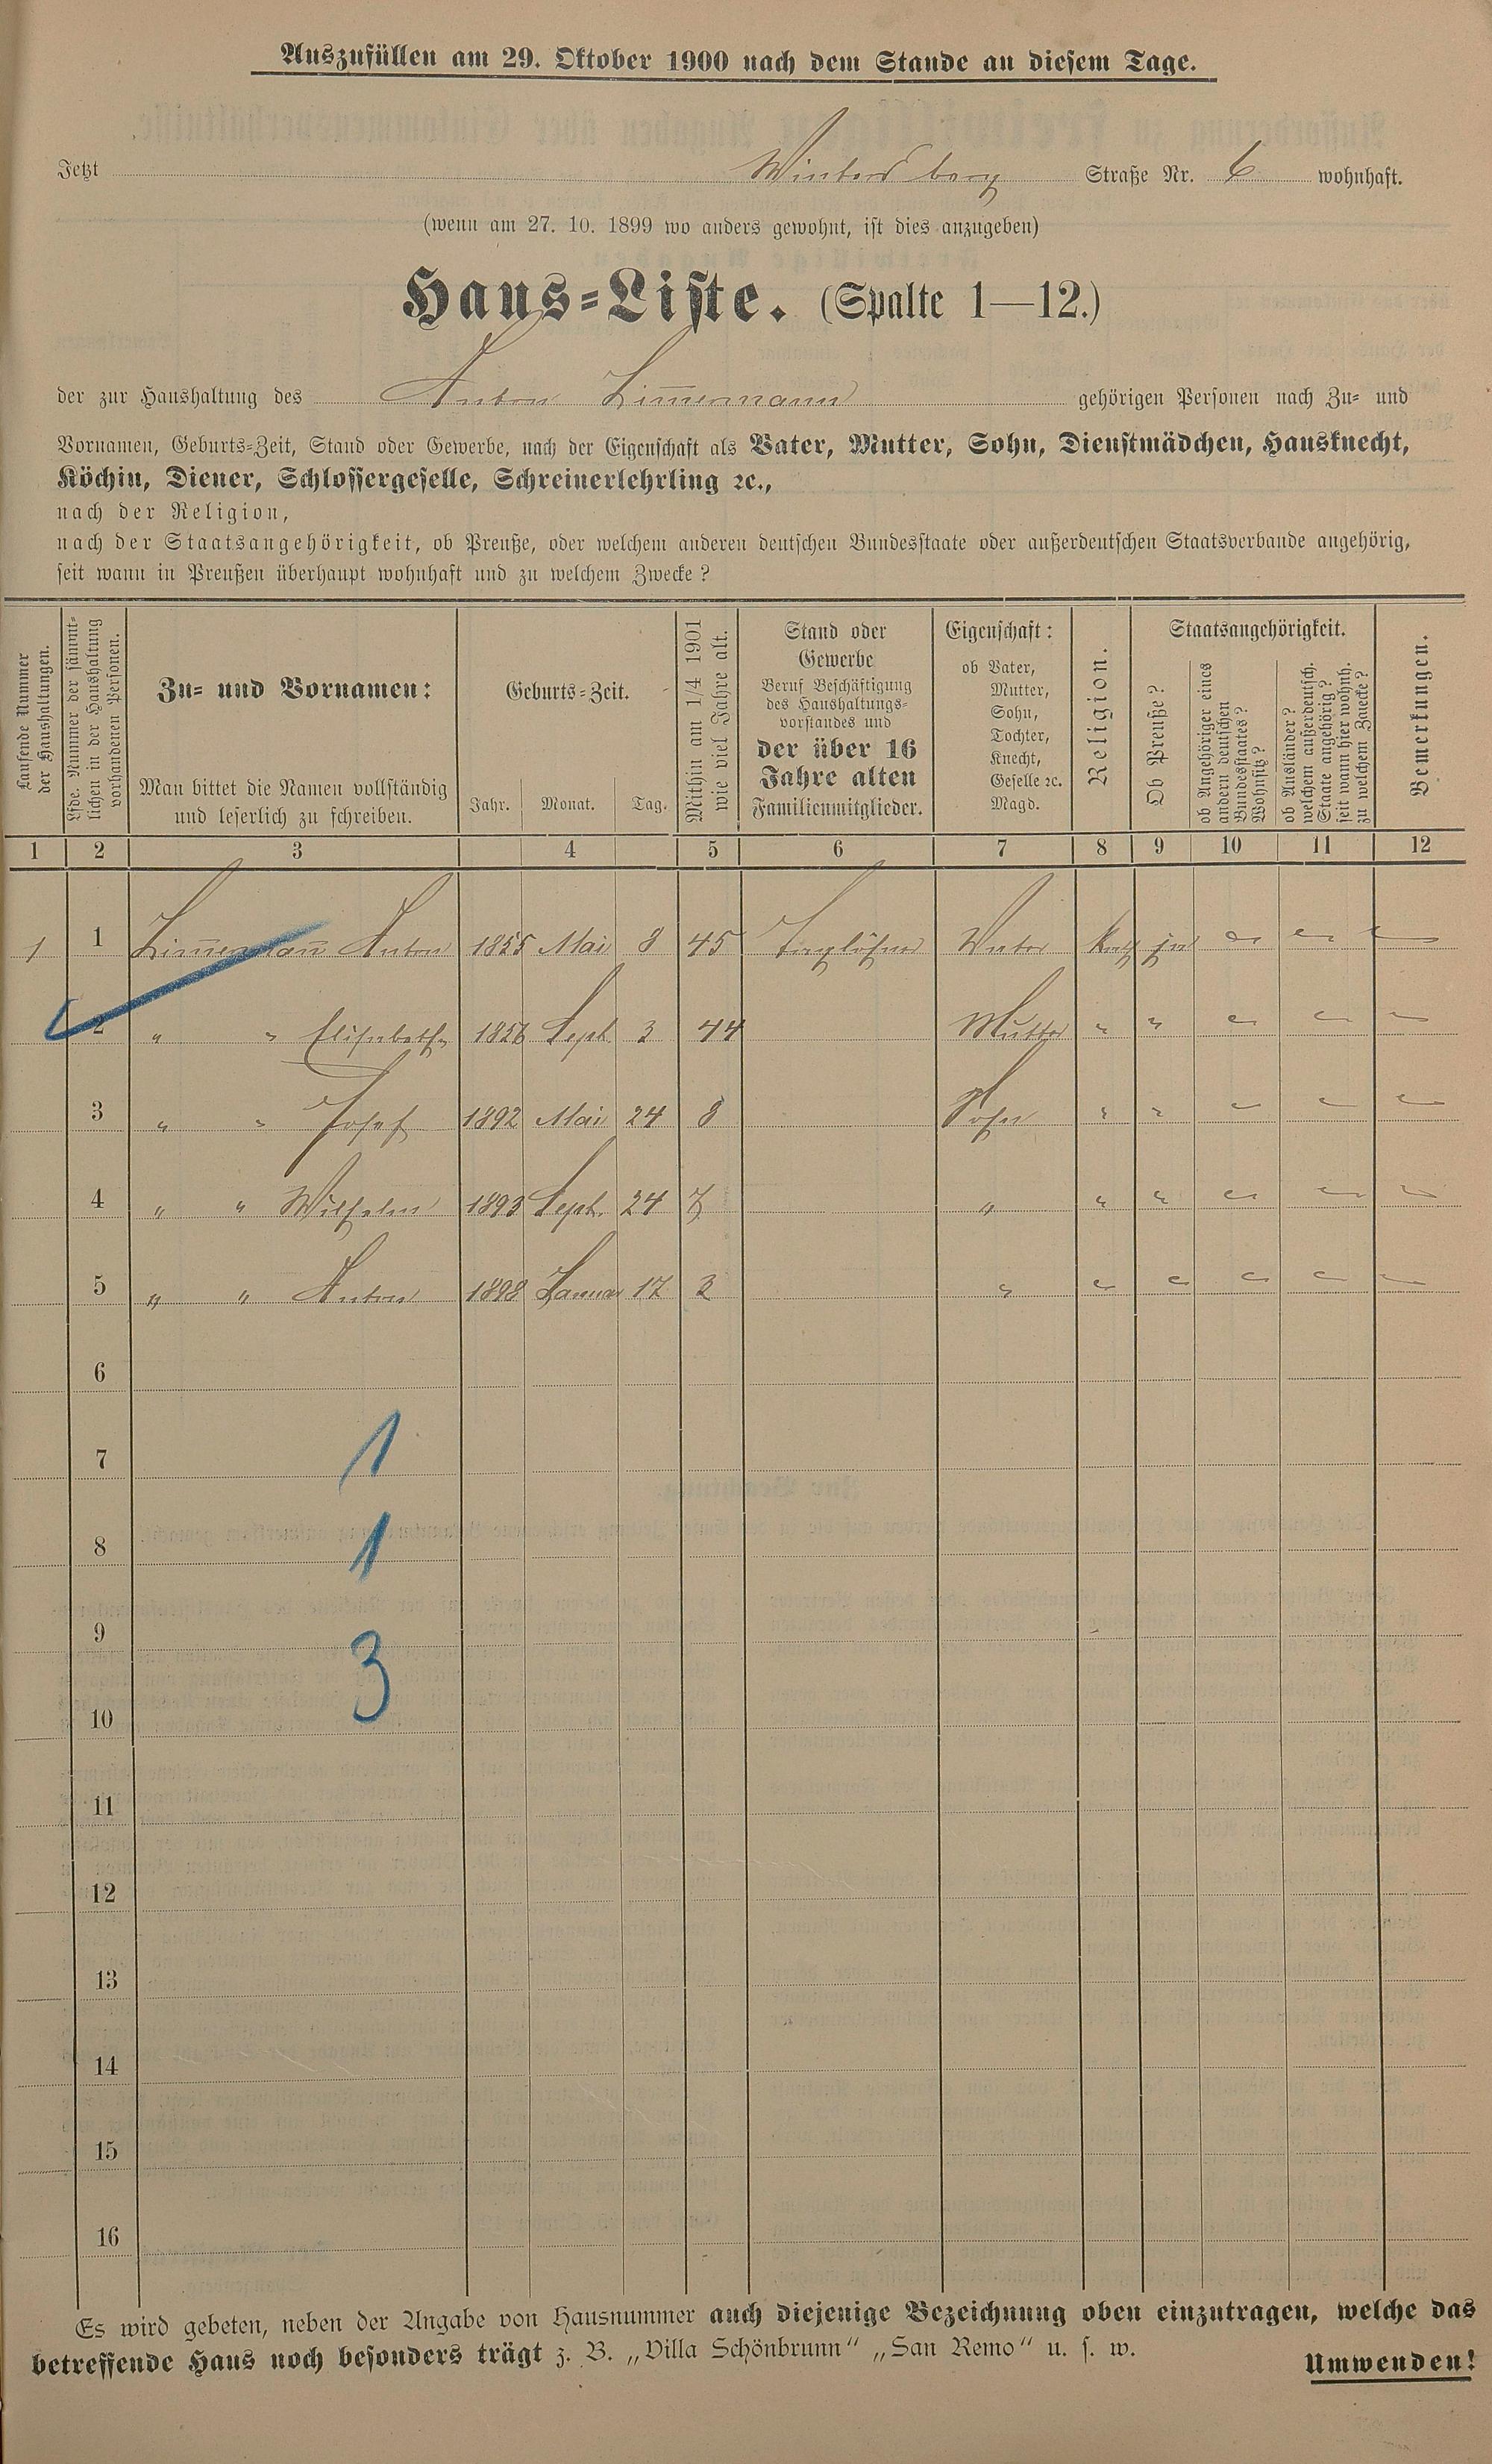 Auszufüllen am 29. Oktober 1900 nach dem Stande an diesem Tage.
Jetzt Wintersberg Straße Nr. 6 wohnhaft.
(wenn am 27. 10. 1899 wo anders gewohnt, ist dies anzugeben)
Haus-Liste. (Spalte 1—12.)
der zur Haushaltung des Anton Zim̅ermann gehörigen Personen nach Zu- und
Vornamen, Geburts-Zeit, Stand oder Gewerbe, nach der Eigenschaft als Vater, Mutter, Sohn, Dienstmädchen, Hausknecht,
Köchin, Diener, Schlossergeselle, Schreinerlehrling ꝛc.,
nach der Religion,
nach der Staatsangehörigkeit, ob Preuße, oder welchem anderen deutschen Bundesstaate oder außerdeutschen Staatsverbande angehörig,
seit wann in Preußen überhaupt wohnhaft und zu welchem Zwecke?
Laufende Nummer
der Haushaltungen.
Lfde. Nummer der sämmt-
lichen in der Haushaltung
vorhandenen Personen.
Zu- und Vornamen:
Man bittet die Namen vollständig
und leserlich zu schreiben.
Geburts-Zeit.
Jahr. Monat. Tag.
Mithin am 1/4 1901
wie viel Jahre alt.
Stand oder
Gewerbe
Beruf Beschäftigung
des Haushaltungs-
vorstandes und
der über 16
Jahre alten
Familienmitglieder.
Eigenschaft:
ob Vater,
Mutter,
Sohn,
Tochter,
Knecht,
Geselle ꝛc.
Magd.
Religion.
Staatsangehörigkeit.
Ob Preuße?
ob Angehöriger eines
andern deutschen
Bundesstaates?
Wohnsitz?
ob Ausländer?
welchem außerdeutsch.
Staate angehörig?
seit wann hier wohnh.
zu welchem Zwecke?
Bemerkungen.
1 2 3 4 5 6 7 8 9 10 11 12
1 1 Zim̅erman̅ Anton 1855 Mai 8 45 Taglöhner Vater kath ja
2 " " Elisabetha 1856 Sept. 3 44 Mutter " "
3 " " Josef 1892 Mai 24 8 Sohn " "
4 " " Wilhelm 1893 Sept. 24 7 " " "
5 " " Anton 1898 Januar 17 3 " " "
6
7
1
8
1
9
3
10
11
12
13
14
15
16
Es wird gebeten, neben der Angabe von Hausnummer auch diejenige Bezeichnung oben einzutragen, welche das
betreffende Haus noch besonders trägt z. B. „Villa Schönbrunn“ „San Remo“ u. s. w.
Umwenden!